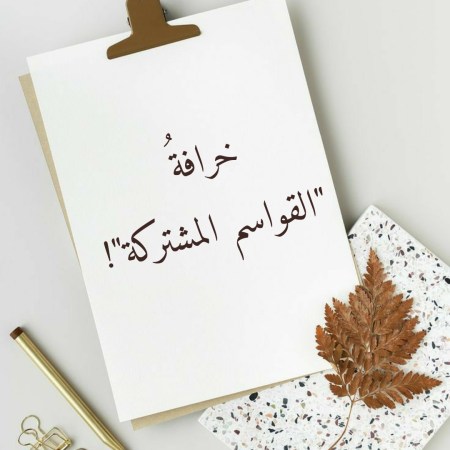 خرافةُ
"القواسم المشتركة"!